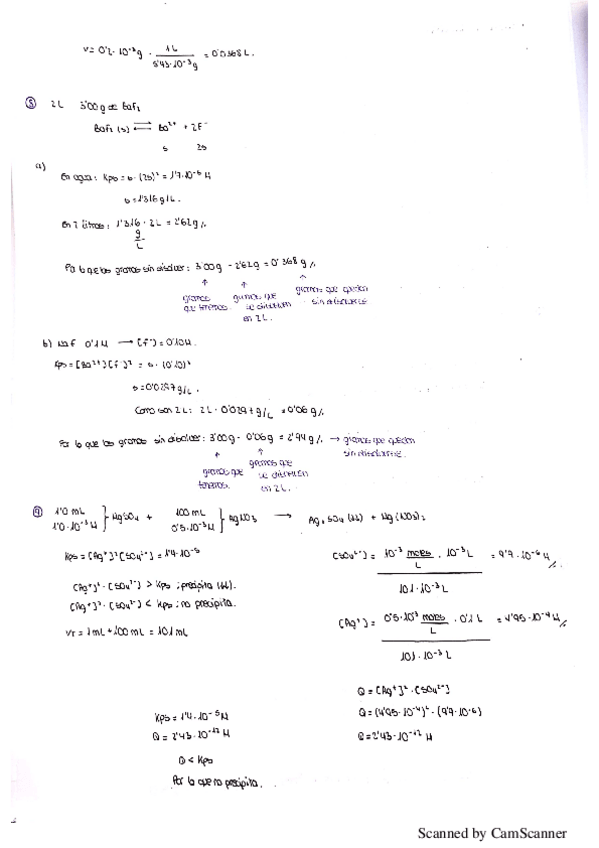 v = 0'2 · 10⁻³ g · 1 L / 5'43 · 10⁻³ g = 0'0368 L.
⑧ 2L 3'00 g de BaF₂
BaF₂ (s) ⇌ Ba²⁺ + 2F⁻
s 2s
a)
En agua: Kps = s · (2s)² = 1'7 · 10⁻⁶ M
s = 1'316 g/L.
En 2 litros: 1'316 g/L · 2L = 2'62 g
Por lo que los gramos sin disolver: 3'00 g - 2'62 g = 0'368 g
gramos que tenemos
gramos que se disuelven en 2L.
gramos que quedan sin disolverse
b) NaF 0'1 M → [F⁻] = 0'10 M.
Kps = [Ba²⁺][F⁻]² = s · (0'10)²
s = 0'0297 g/L.
Como son 2L: 2L · 0'0297 g/L = 0'06 g
Por lo que los gramos sin disolver: 3'00 g - 0'06 g = 2'94 g → gramos que quedan sin disolverse.
gramos que tenemos.
gramos que se disuelven en 2L.
⑨ 1'0 mL 1'0 · 10⁻³ M } MgSO₄ + 100 mL 0'5 · 10⁻³ M } AgNO₃ → Ag₂SO₄ (s) + Mg(NO₃)₂
Kps = [Ag⁺]² [SO₄²⁻] = 1'4 · 10⁻⁵
[Ag⁺]² · [SO₄²⁻] > Kps ; precipita
[Ag⁺]² · [SO₄²⁻] < Kps ; no precipita.
Vr = 1 mL + 100 mL = 101 mL
[SO₄²⁻] = 10⁻³ moles/L · 10⁻³ L / 101 · 10⁻³ L = 9'9 · 10⁻⁶ M
[Ag⁺] = 0'5 · 10⁻³ moles/L · 0'1 L / 101 · 10⁻³ L = 4'95 · 10⁻⁴ M
Q = [Ag⁺]² · [SO₄²⁻]
Q = (4'95 · 10⁻⁴)² · (9'9 · 10⁻⁶)
Q = 2'43 · 10⁻¹² M
Kps = 1'4 · 10⁻⁵ M
Q = 2'43 · 10⁻¹² M
Q < Kps
Por lo que no precipita.
Scanned by CamScanner